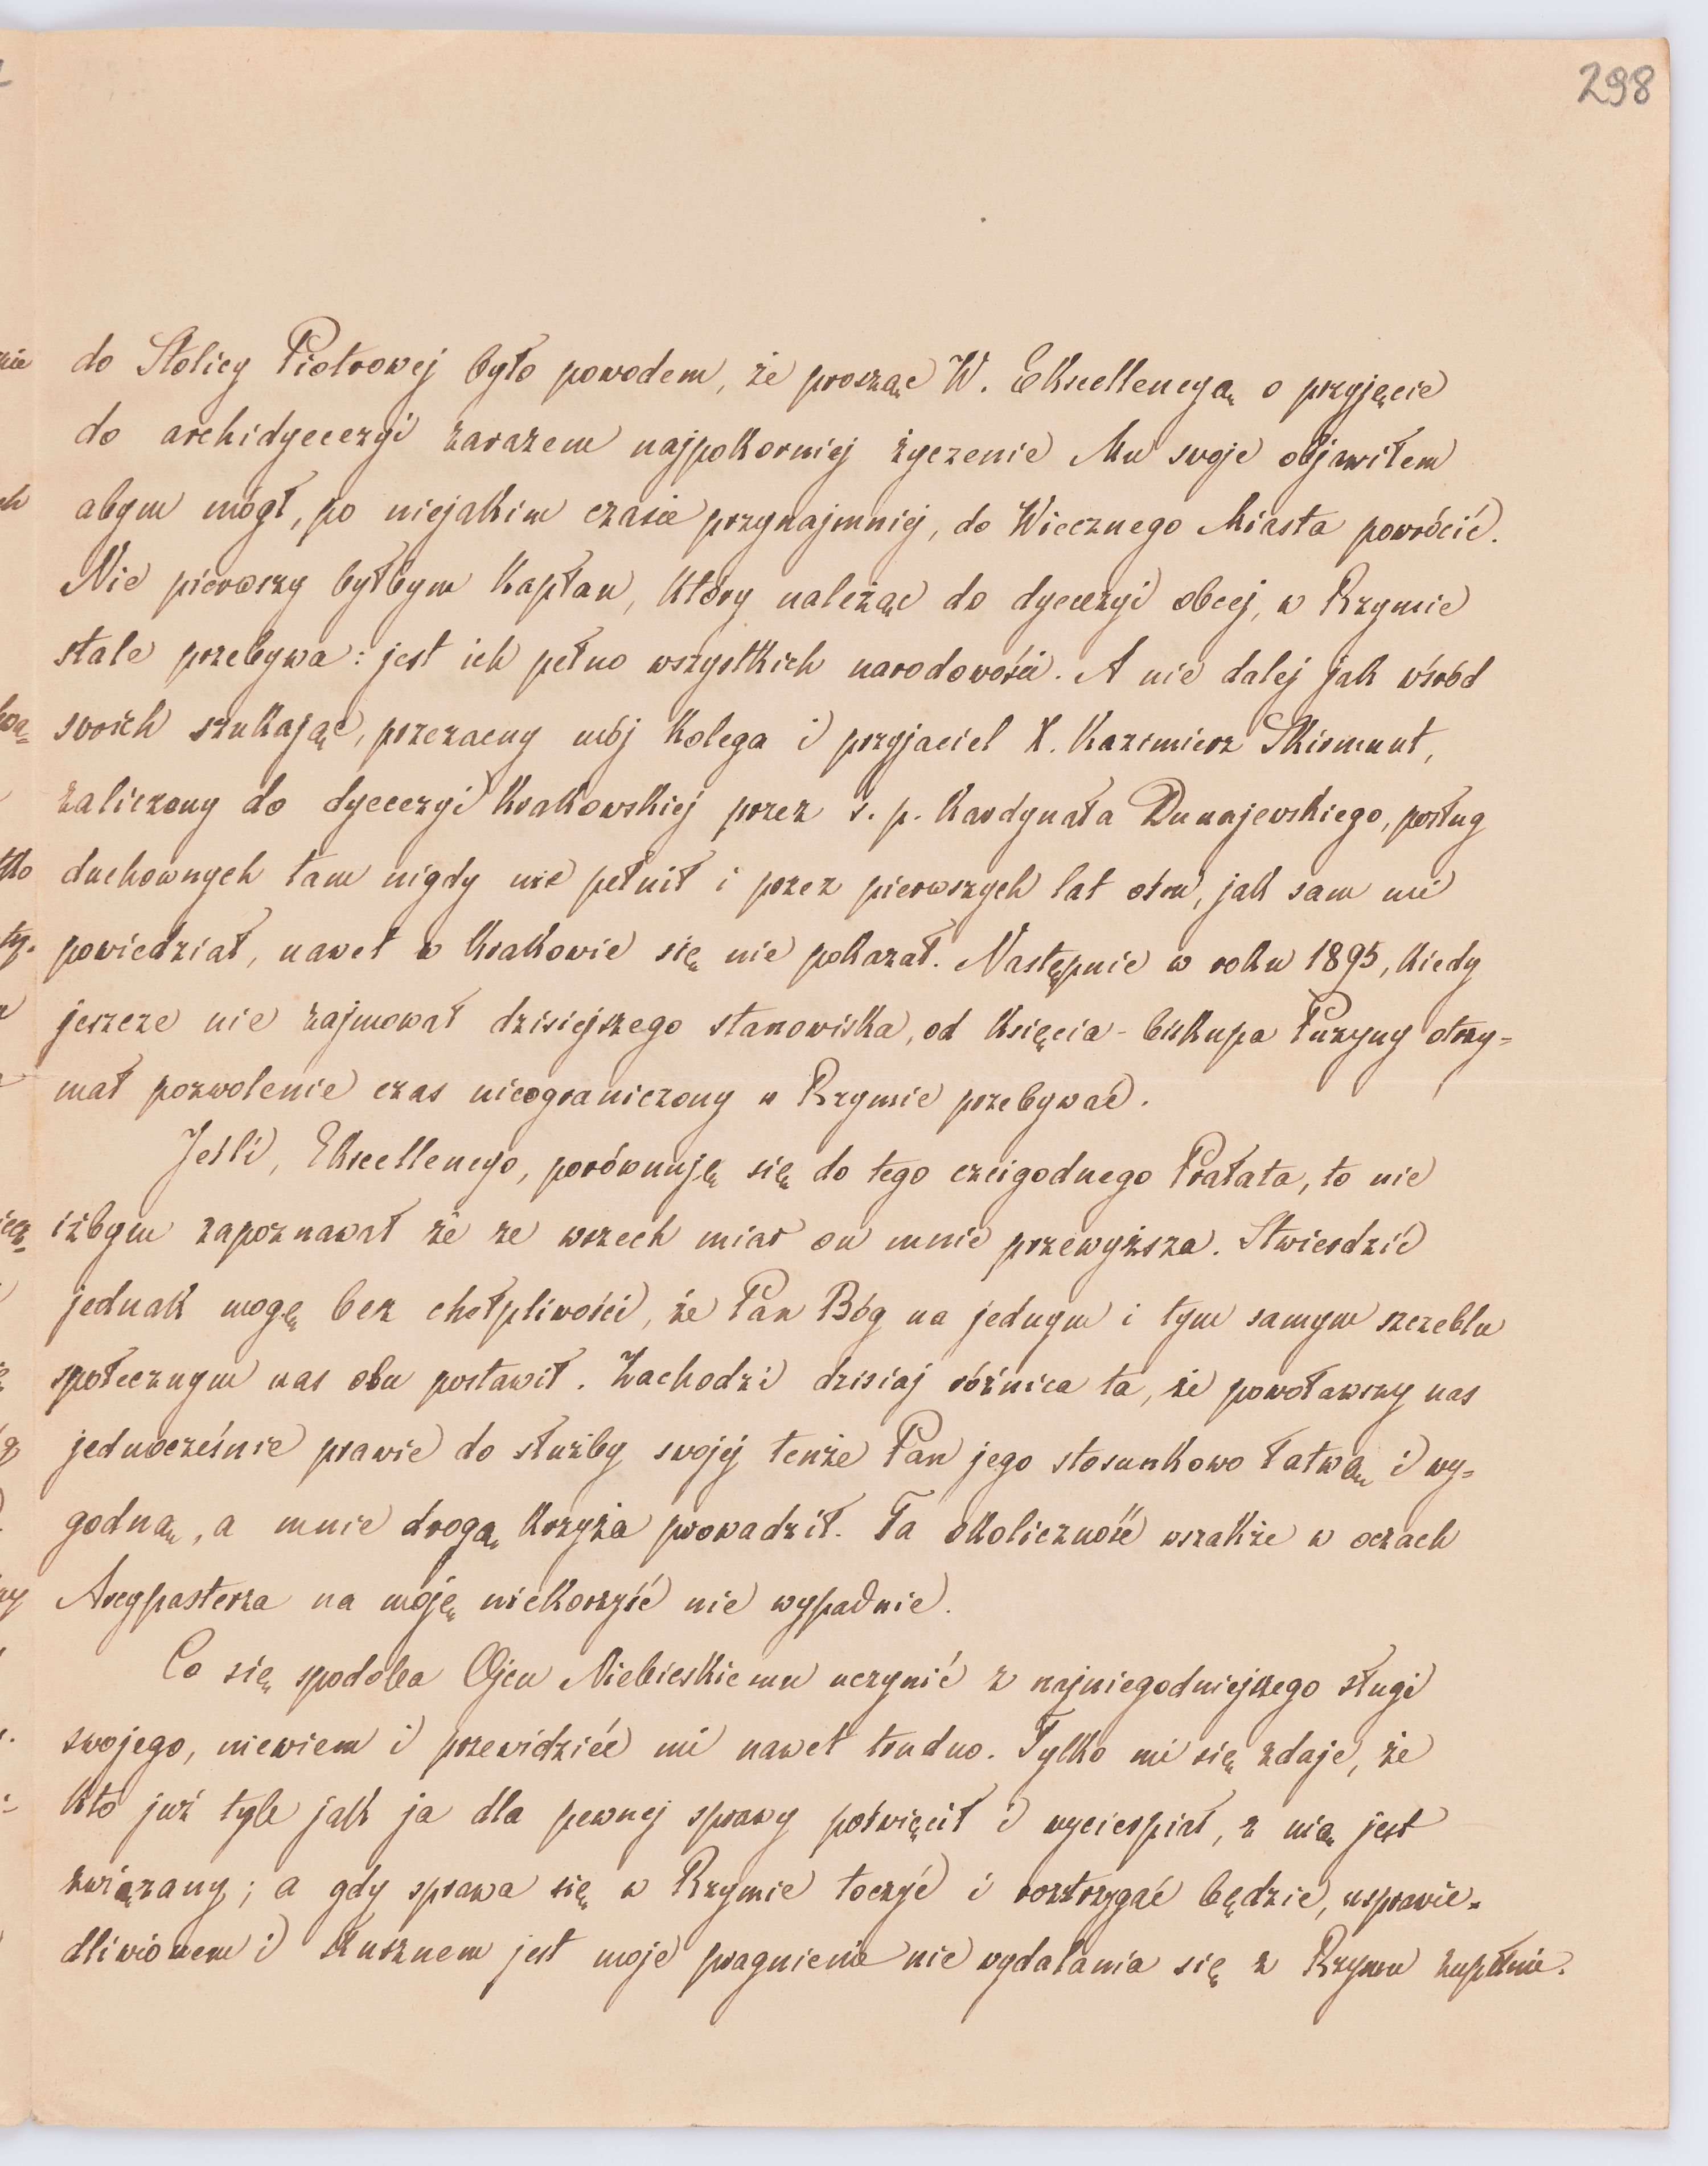 298
do Stolicy Piotrowej było powodem, że prosząc W. Ekscellencyą o przyjęcie
do archidyecezyi zarazem najpokorniej życzenie Mu swoje objawiłem
abym mógł, po niejakim czasie przynajmniej, do Wiecznego Miasta powrócić.
Nie pierwszy byłbym Kapłan, który należąc do dyecezyi obcej, w Rzymie
stale przebywa: jest ich pełno wszystkich narodowości. A nie dalej jak wśród
swoich szukając, przezacny mój Kolega i przyjaciel X. Kazimierz Skirmunt,
zaliczony do dyecezyi Krakowskiej przez ś. p. Kardynała Dunajewskiego, posług
duchownych tam nigdy nie pełnił i przez pierwszych lat ośm, jak sam mi
powiedział, nawet w Krakowie się nie pokazał. Następnie w roku 1895, kiedy
jeszcze nie zajmował dzisiejszego stanowiska, od Księcia-biskupa Puzyny otrzy=
mał pozwolenie czas nieograniczony w Rzymie przebywać.
Jeśli, Ekscellencyo, porównuję się do tego czcigodnego Prałata, to nie
iżbym zapoznawał że ze wszech miar on mnie przewyższa. Stwierdzić
jednak mogę bez chełpliwości, że Pan Bóg na jednym i tym samym szczeblu
społecznym nas obu postawił. Zachodzi dzisiaj różnica ta, że powoławszy nas
jednocześnie prawie do służby swojej tenże Pan jego stosunkowo łatwą i wy=
godną, a mnie drogą Krzyża prowadził. Ta okoliczność wszakże w oczach
Arcypasterza na moję niekorzyść nie wypadnie.
Co się spodoba Ojcu Niebieskiemu uczynić z najniegodniejszego sługi
swojego, niewiem i przewidzieć mi nawet trudno. Tylko mi się zdaje, że
kto już tyle jak ja dla pewnej sprawy poświęcił i wycierpiał, z nią jest
związany; a gdy sprawa się w Rzymie toczyć i rozstrzygać będzie, usprawie=
dliwionem i słusznem jest moje pragnienie nie wydalania się z Rzymu zupełnie.